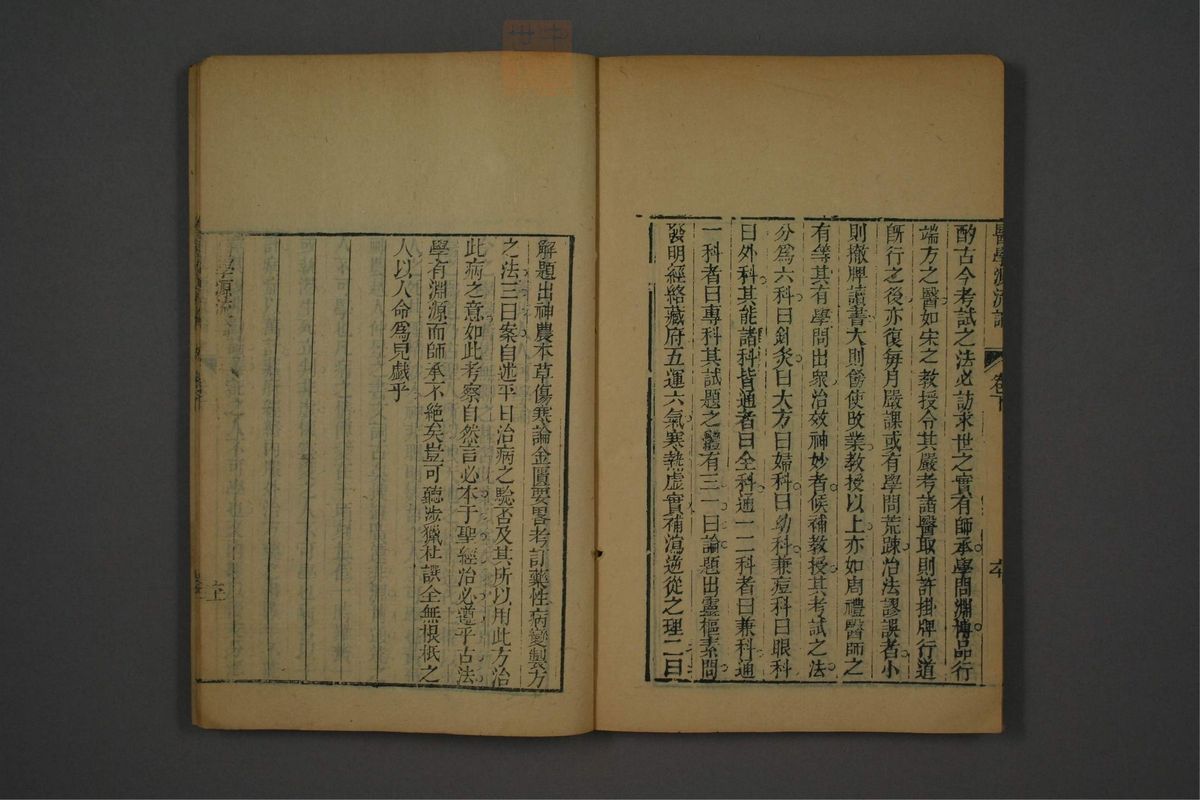 醫學源流論
卷下
酌古今考試之法必訪求世之實有師承學問淵博品行
端方之醫如宋之教授令其嚴考諸醫取則許掛牌行道
既行之後亦復每月嚴課或有學問荒疎治法謬誤者小
則撤牌讀書大則飭使改業教授以上亦如周禮醫師之
有等其有學問出衆治效神妙者候補教授其考試之法
分爲六科曰鍼灸曰大方曰婦科曰幼科兼痘科曰眼科
曰外科其能諸科皆通者曰全科通一二科者曰兼科通
一科者曰專科其試題之體有三一曰論題出靈樞素問
發明經絡藏府五運六氣寒熱虛實補瀉逆從之理二曰
解題出神農本草傷寒論金匱要畧考訂藥性病變製方
之法三曰案自述平日治病之驗否及其所以用此方治
此病之意如此考察自然言必本于聖經治必遵乎古法
學有淵源而師承不絕矣豈可聽涉獵杜譔全無根柢之
人以人命爲兒戲乎